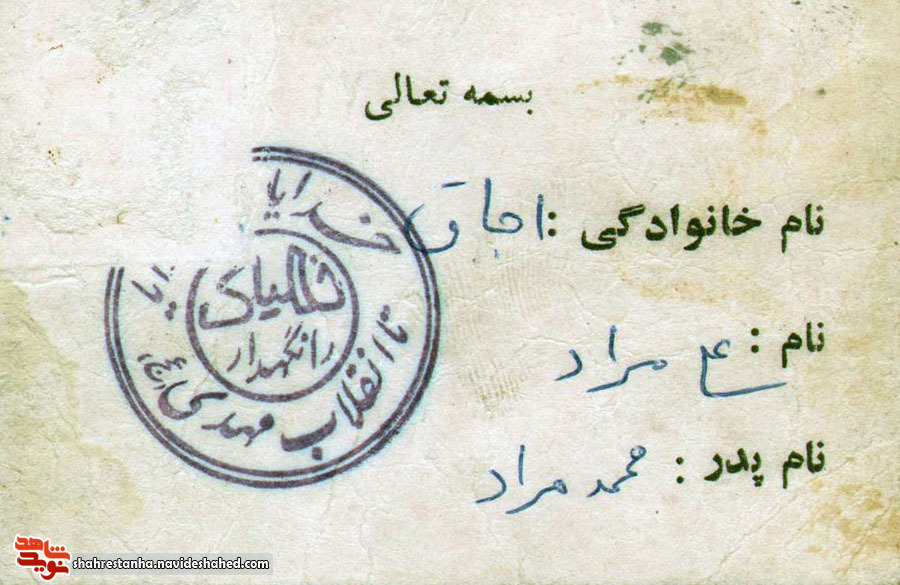 بسمه تعالی
نام خانوادگی : اجاق
نام : علی مراد
نام پدر : محمد مراد
خدایا
تا انقلاب مهدی (عج)
را نگهدار
شاهد
نوید
shahrestanha.navideshahed.com